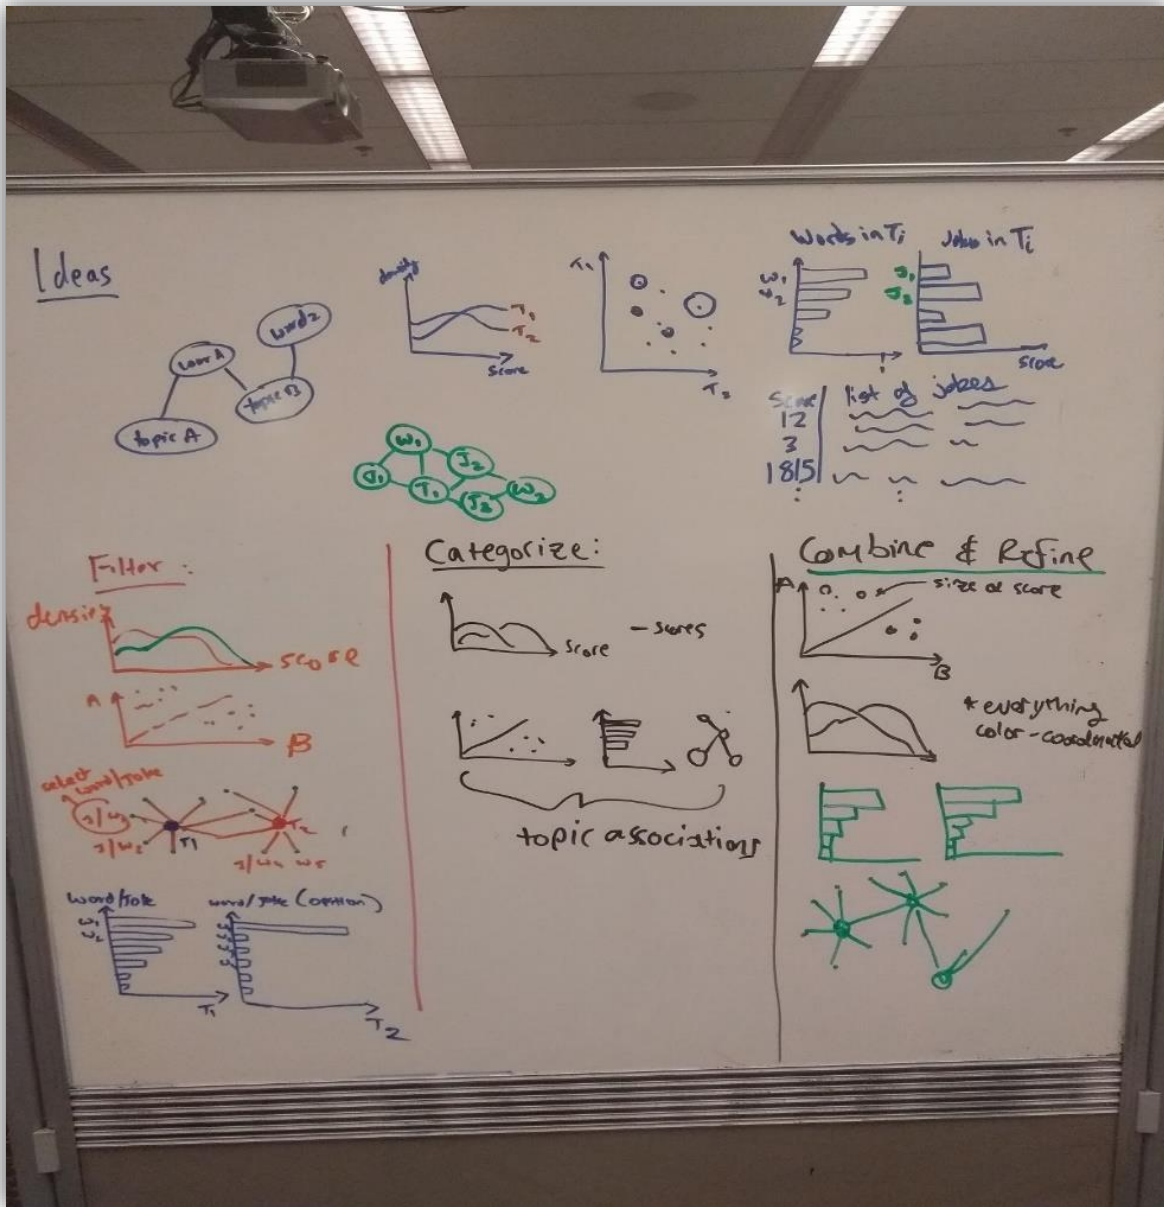 Ideas
word A
word 2
topic B
topic A
density
T1
T2
score
T1
T2
Words in Ti
W1
Jokes in Ti
J1
J2
score
Score
list of jokes
12
3
1815
W1
J2
J1
T1
J3
W2
Filter:
density
score
A
B
select
word/joke
J/W3
J/W2
T1
T2
J/W4
W5
word/joke
W1
W2
T1
word/joke (option)
T2
Categorize:
score
- scores
topic associations
Combine & Refine
A
size α score
B
* everything
color-coordinated